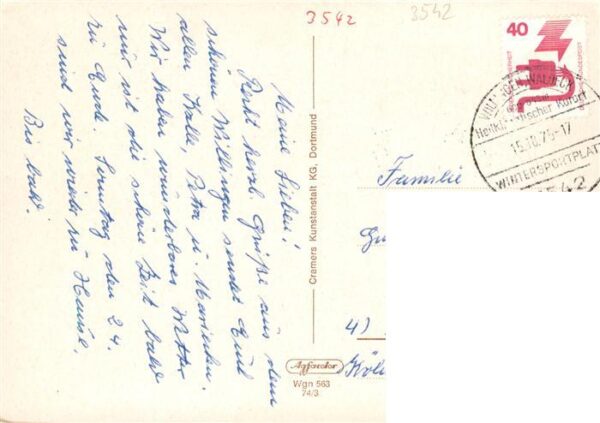 3542
3542
Meine Lieben!
Recht herzl. Grüße aus dem
schönen Willingen sendet Euch
allen Kalle, Petra u. Marienken.
Wir haben wunderbares Wetter
nur ist die schöne Zeit bald
zu Ende. Sonntag den 24.
sind wir wieder zu Hause.
Bis bald.
Cramers Kunstanstalt KG, Dortmund
Agfacolor
Wgn 563
74/3
40
BUNDESPOST
WILLINGEN, WALDECK
Heilklimatischer Kurort
15.10.75-17
WINTERSPORTPLATZ
3542
Familie
4)
Köln